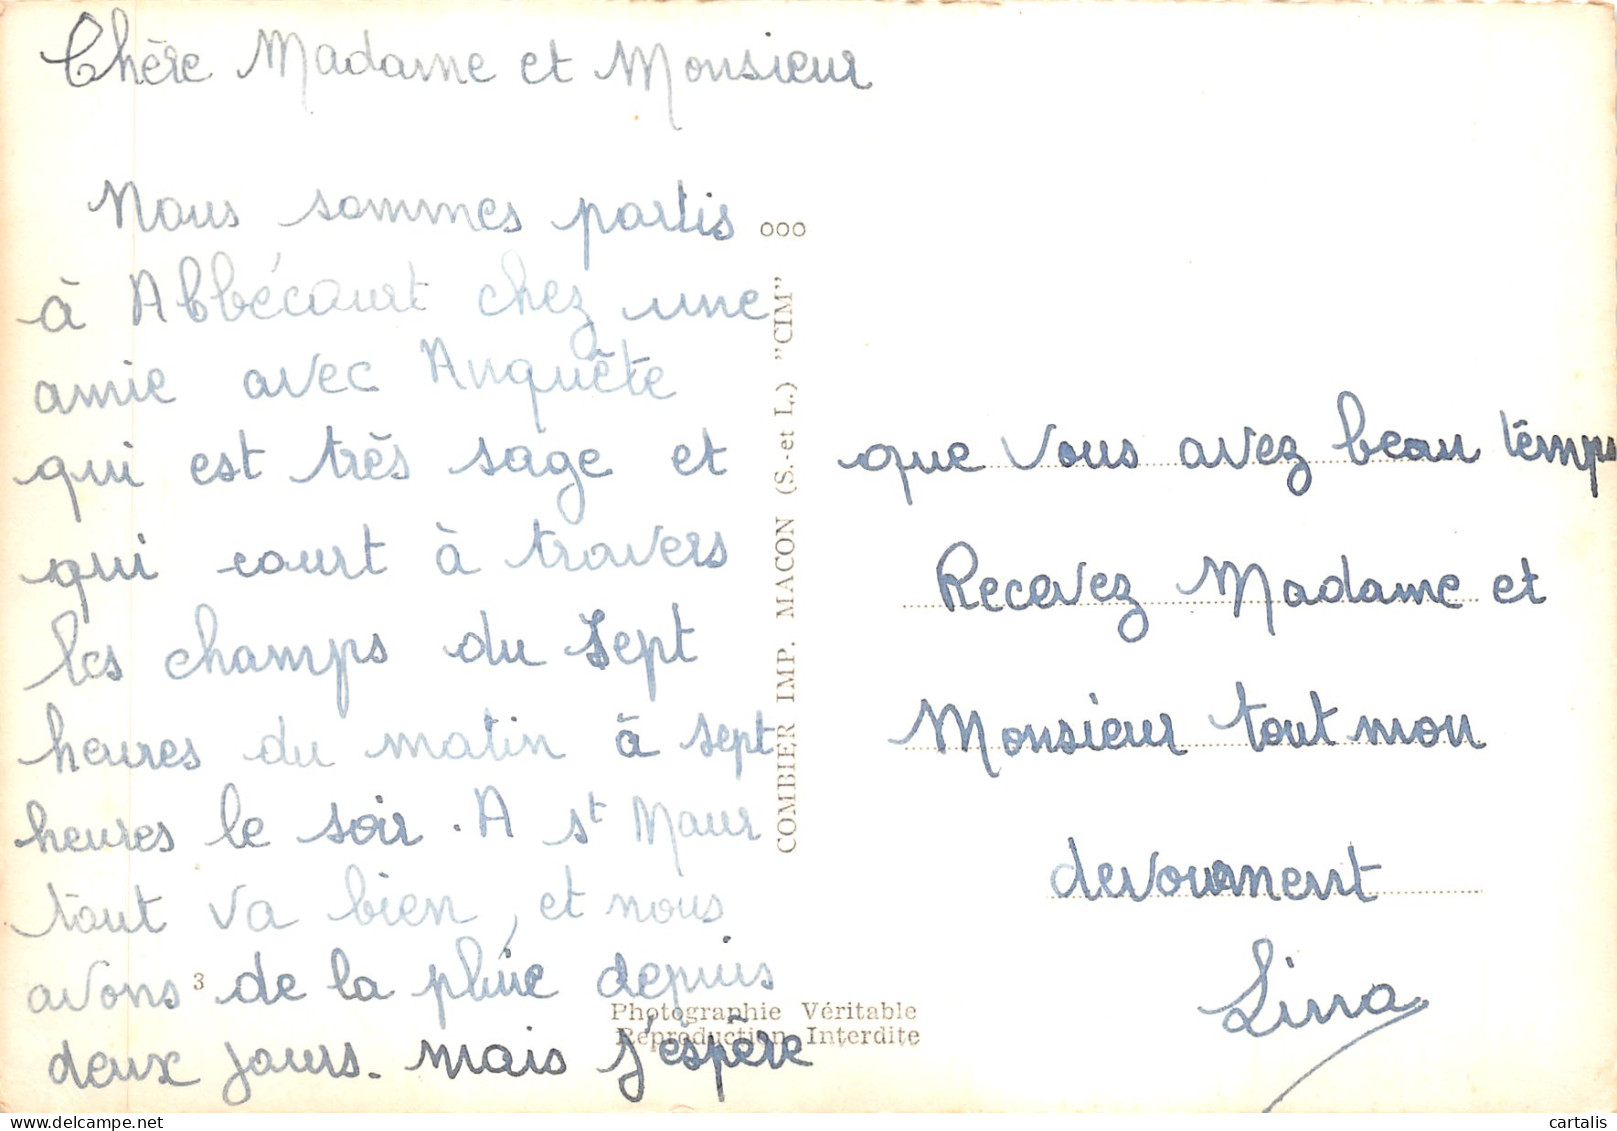 Chère Madame et Monsieur
Nous sommes partis
à Abbécourt chez une
amie avec Anquête
qui est très sage et
qui court à travers
les champs du Sept
heures du matin à sept
heures le soir. A st Maur
tout va bien, et nous
avons de la pluie depuis
deux jours. mais j'éspère
que vous avez beau temps
Recevez Madame et
Monsieur tout mon
devouement
Lina
ooo
COMBIER IMP. MACON (S.-et L.) "CIM"
3
Photographie Véritable
Réproduction Interdite
cartalis